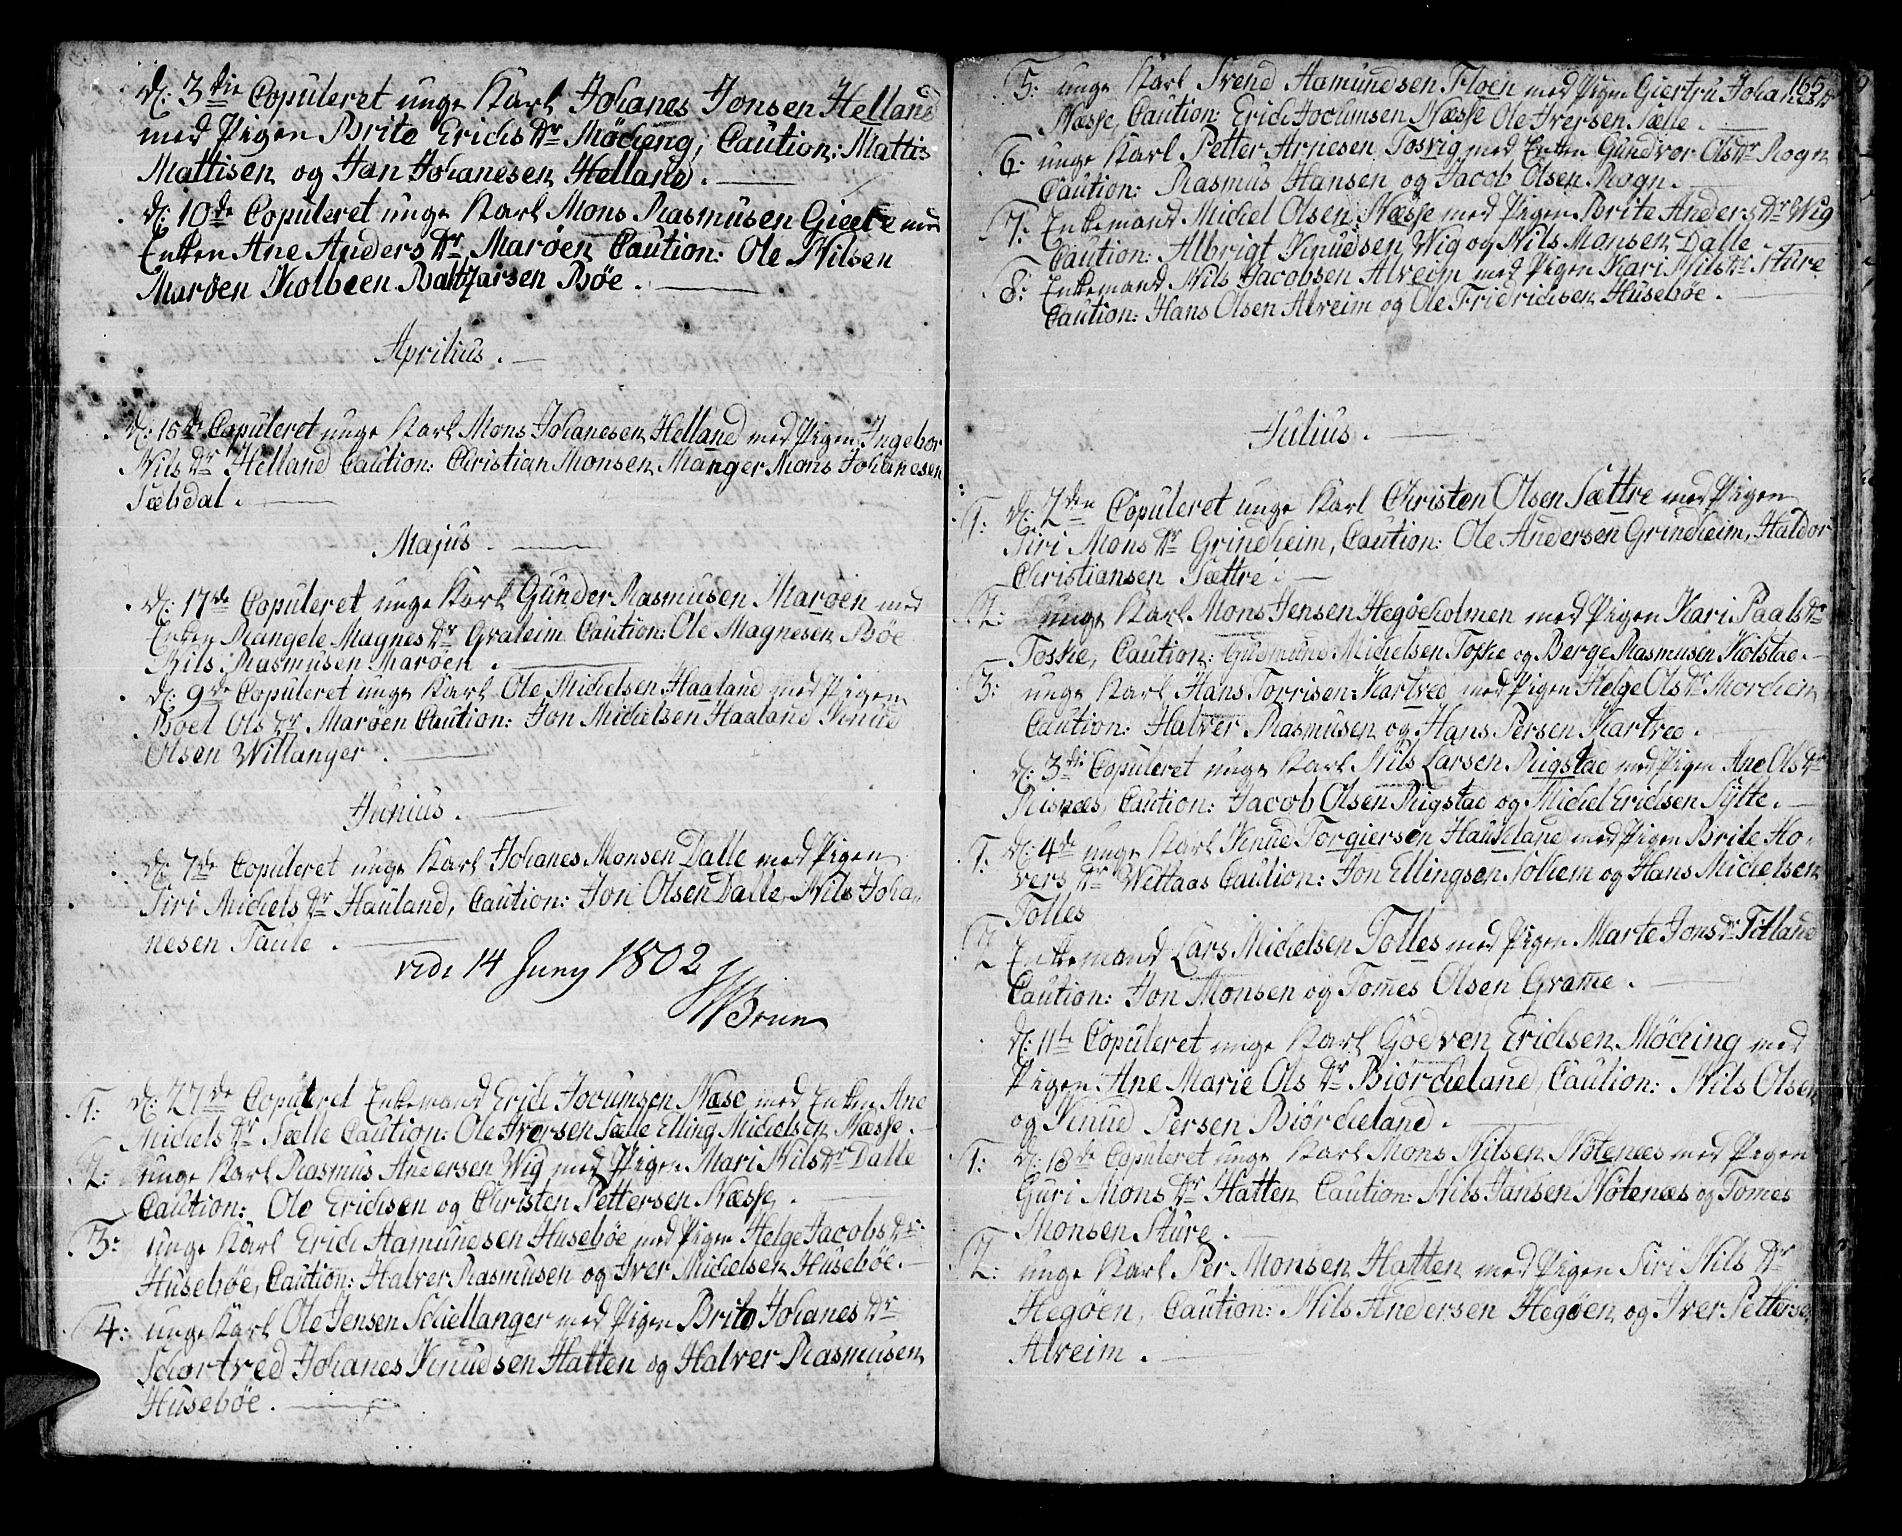 d: 3die Copuleret unge Karl Johanes Jonsen Helland
med Pigen Brite Erichs dr Möcheng, Caution: Mattis
Mattisen og Jan Johanesen Helland.
d: 10de Copuleret unge Karl Mons Rasmusen
Enken Ane Anders dr Marøen Caution: Ole Nilsen
Marøen Kolbeen Baltzarsen Bøe.
Aprilius.
d: 15de Copuleret unge Karl Mons Johanesen Helland med Pigen Ingebor
Nils dr Helland Caution: Christian Monsen Manger Mons Johanesen
Sæbdal.
Majus.
d: 17de Copuleret unge Karl Gunder Rasmusen Marøen med
Enken Rangele Magnes dr Graleim Caution: Ole Magnesen Bøe
Nils Rasmusen Marøen.
d: 9de Copuleret unge Karl Ole Michelsen Haaland med Pigen
Boel Ols dr Marøen Caution: Jon Michelsen Haaland Knud
Olsen Willanger.
Junius.
d: 7de Copuleret unge Karl Johanes Monsen Dalle med Pigen
Siri Michels dr Hauland, Caution: Jon Olsen Dalle, Nils Joha,,
nesen Taule.
vidi 14 Juny 1802
Brun
1: d: 27de Copuleret Enkemand Erich Jocumsen Næse med Enken Ane
Michels dr Sælle Caution: Ole Iversen Sælle Elling Michelsen Næsse.
2: unge Karl Rasmus Andersen Wig med Pigen Mari Nils dr Dalle
Caution: Ole Erichsen og Christen Pettersen Næsse.
3: unge Karl Erich Hamundsen Husebøe med Pigen Helge Jacobs dr
Husebøe, Caution: Halver Rasmusen og Iver Michelsen Husebøe.
4: unge Karl Ole Jensen Schiellanger med Pigen Brite Johanes dr
Schartved Johanes Knudsen Hatten og Halver Rasmusen
Husebøe.
165
5: unge Karl Svend Hamundsen Floen med Pigen Giertru Johanes dr
Næsse, Caution: Erich Jocumsen Næsse Ole Iversen Sælle.
6: unge Karl Petter Arnesen Tosvig med Enken Gundvor Ols dr Rogn
Caution: Rasmus Hansen og Jacob Olsen Rogn.
7: Enkemand Michel Olsen Næsse med Pigen Brite Anders dr Wig
Caution: Albrigt Knudsen Wig og Nils Monsen Dalle.
8: Enkemand Nils Jacobsen Alveim med Pigen Kari Nils dr Sture
Caution: Hans Olsen Alveim og Ole Fridrichsen Husebøe.
Julius.
1: d: 2den Copuleret unge Karl Christen Olsen Sættre med Pigen
Siri Mons dr Grindheim, Caution: Ole Andersen Grindheim, Haldor
Christiansen Sættre.
2: unge Karl Mons Jensen Hegøeholmen med Pigen Kari Paals dr
Toske, Caution: Gudmund Michelsen Toske og Berge Rasmusen Kolstad.
3: unge Karl Hans Torrisen Kartved med Pigen Helge Ols dr Morchen
Caution: Halver Rasmusen og Hans Persen Kartved.
d: 3die Copuleret unge Karl Nils Larsen Rigstad med Pigen Ane Ols dr
Risnæs, Caution: Jacob Olsen Rigstad og Michel Erichsen Sylte.
1: d: 4de unge Karl Knud Torgiersen Hauseland med Pigen Brite Ho-
vers dr Wettaas Caution: Jon Ellingsen Solhem og Hans Michelsen
Tolles
2 Enkemand Lars Michelsen Tolles med Pigen Marte Jons dr Titland
Caution: Jon Monsen og Tomes Olsen Grame.
d: 11te Copuleret unge Karl Godven Erichsen Möching med
Pigen Ane Marie Ols dr Biørcheland, Caution: Nils Olsen
og Knud Persen Biørcheland.
1: d: 18de Copuleret unge Karl Mons Nilsen Nötenæs med Pigen
Guri Mons dr Hatten Caution: Nils Hansen Nötenæs og Tomes
Monsen Sture.
2: unge Karl Per Monsen Hatten med Pigen Siri Nils dr
Hegøen, Caution: Nils Andersen Hegøen og Iver Petterse
Alveim.